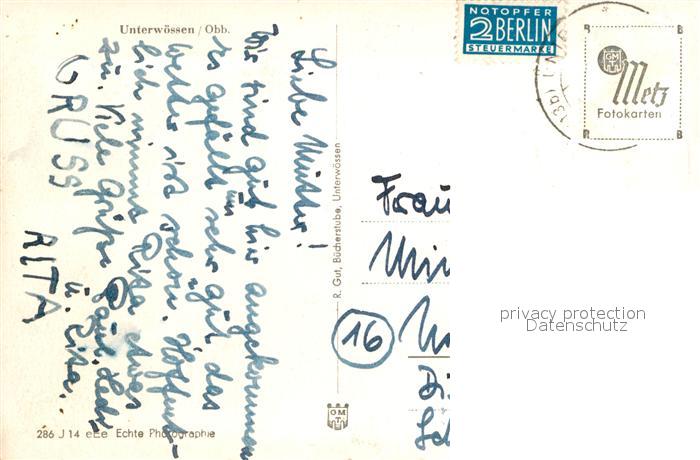 Unterwössen / Obb.
Liebe Mutter!
Wir sind gut hier angekommen
es gefällt uns sehr gut das
Wetter ist schön. Hoffent-
lich nimmt Rita etwas
zu. Viele Grüße Paul,
u. Rita.
GRUSS
RITA
R. Gut, Bücherstube, Unterwössen
286 J 14 eEe Echte Photographie
OMT
NOTOPFER
2 BERLIN
STEUERMARKE
(13b)
R B
Metz
Fotokarten
R B
Frau
16
privacy protection
Datenschutz